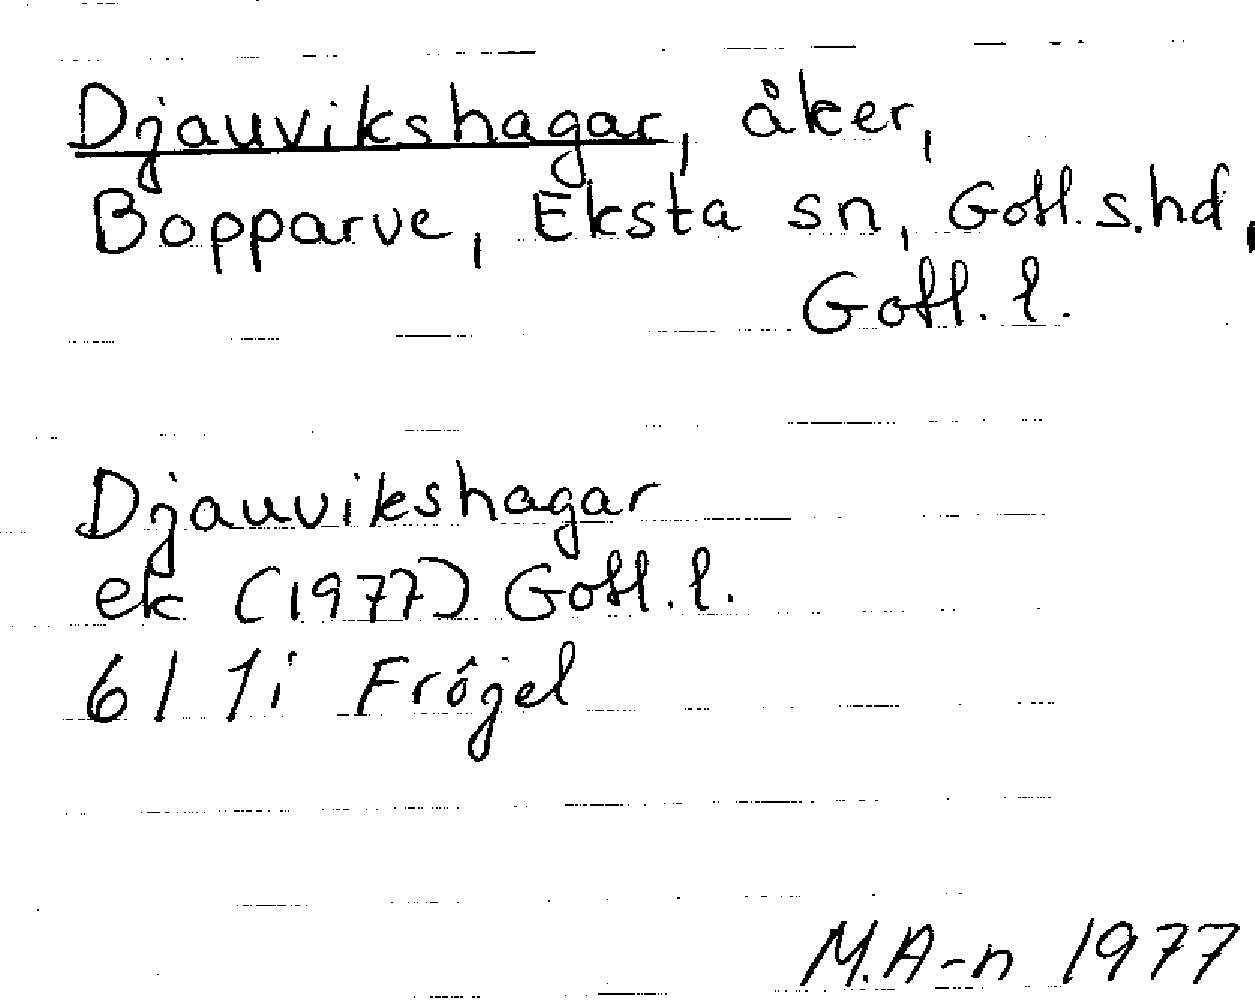 Djauvikshagar, åker,
Bopparve, Eksta sn, Gotl. s. hd,
Gotl. l.
Djauvikshagar
ek (1977) Gotl. l.
6 I 1 i Fröjel
M.A-n 1977